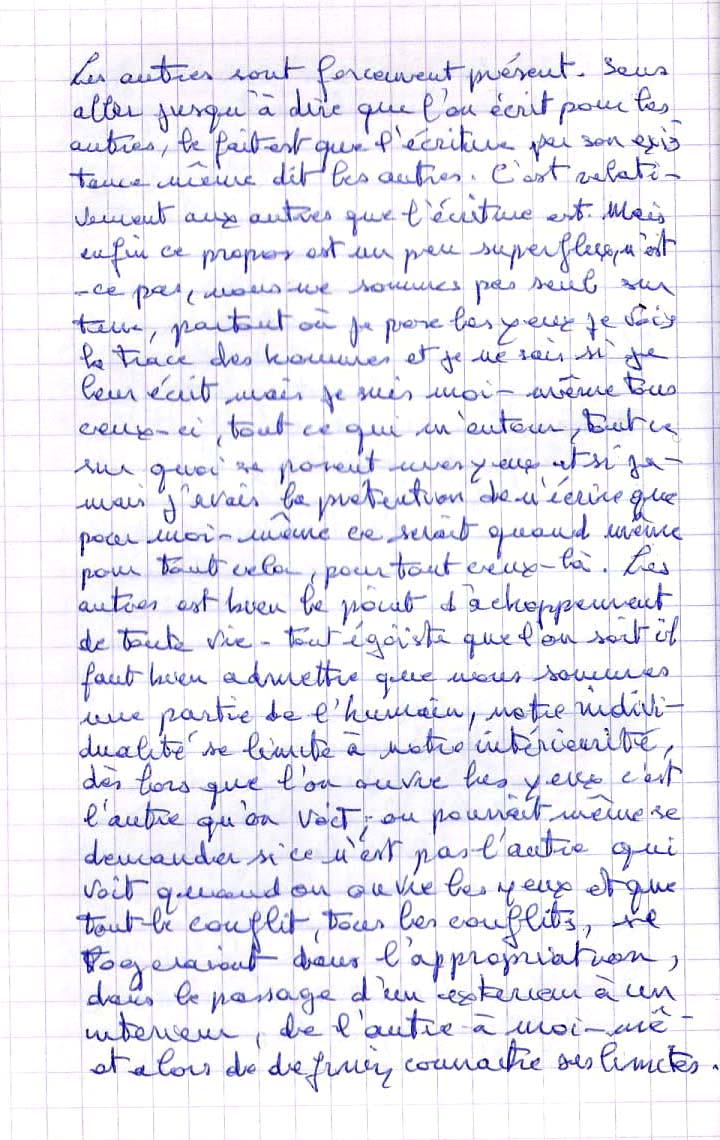 Les autres sont forcement présent. Sans
aller jusqu'à dire que l'on écrit pour les
autres, le fait est que l'écriture par son exis
tence même dit les autres. C'est relati-
vement aux autres que l'écriture est. Mais
enfin ce propos est un peu superflus, n'est
-ce pas, nous ne sommes pas seul sur
terre, partout où je pose les yeux je vois
la trace des hommes et je ne sais si je
leur écrit mais je suis moi-même tous
ceux-ci, tout ce qui m'entour, tout ce
sur quoi se posent mes yeux et si ja-
mais j'avais la prétention de n'écrire que
pour moi-même ce serait quand même
pour tout cela, pour tout ceux-là. Les
autres est bien le point d'achoppement
de toute vie - tout égoïste que l'on soit il
faut bien admettre que nous sommes
une partie de l'humain, notre indivi-
dualité se limite à notre intérieurité,
dès lors que l'on ouvre les yeux c'est
l'autre qu'on voit, on pourrait même se
demander si ce n'est pas l'autre qui
voit quand on ouvre les yeux et que
tout le conflit, tous les conflits, se
logeraient dans l'appropriation,
dans le passage d'un exterieur à un
interieur, de l'autre à moi-mê-
et alors de definir, connaitre ses limites.